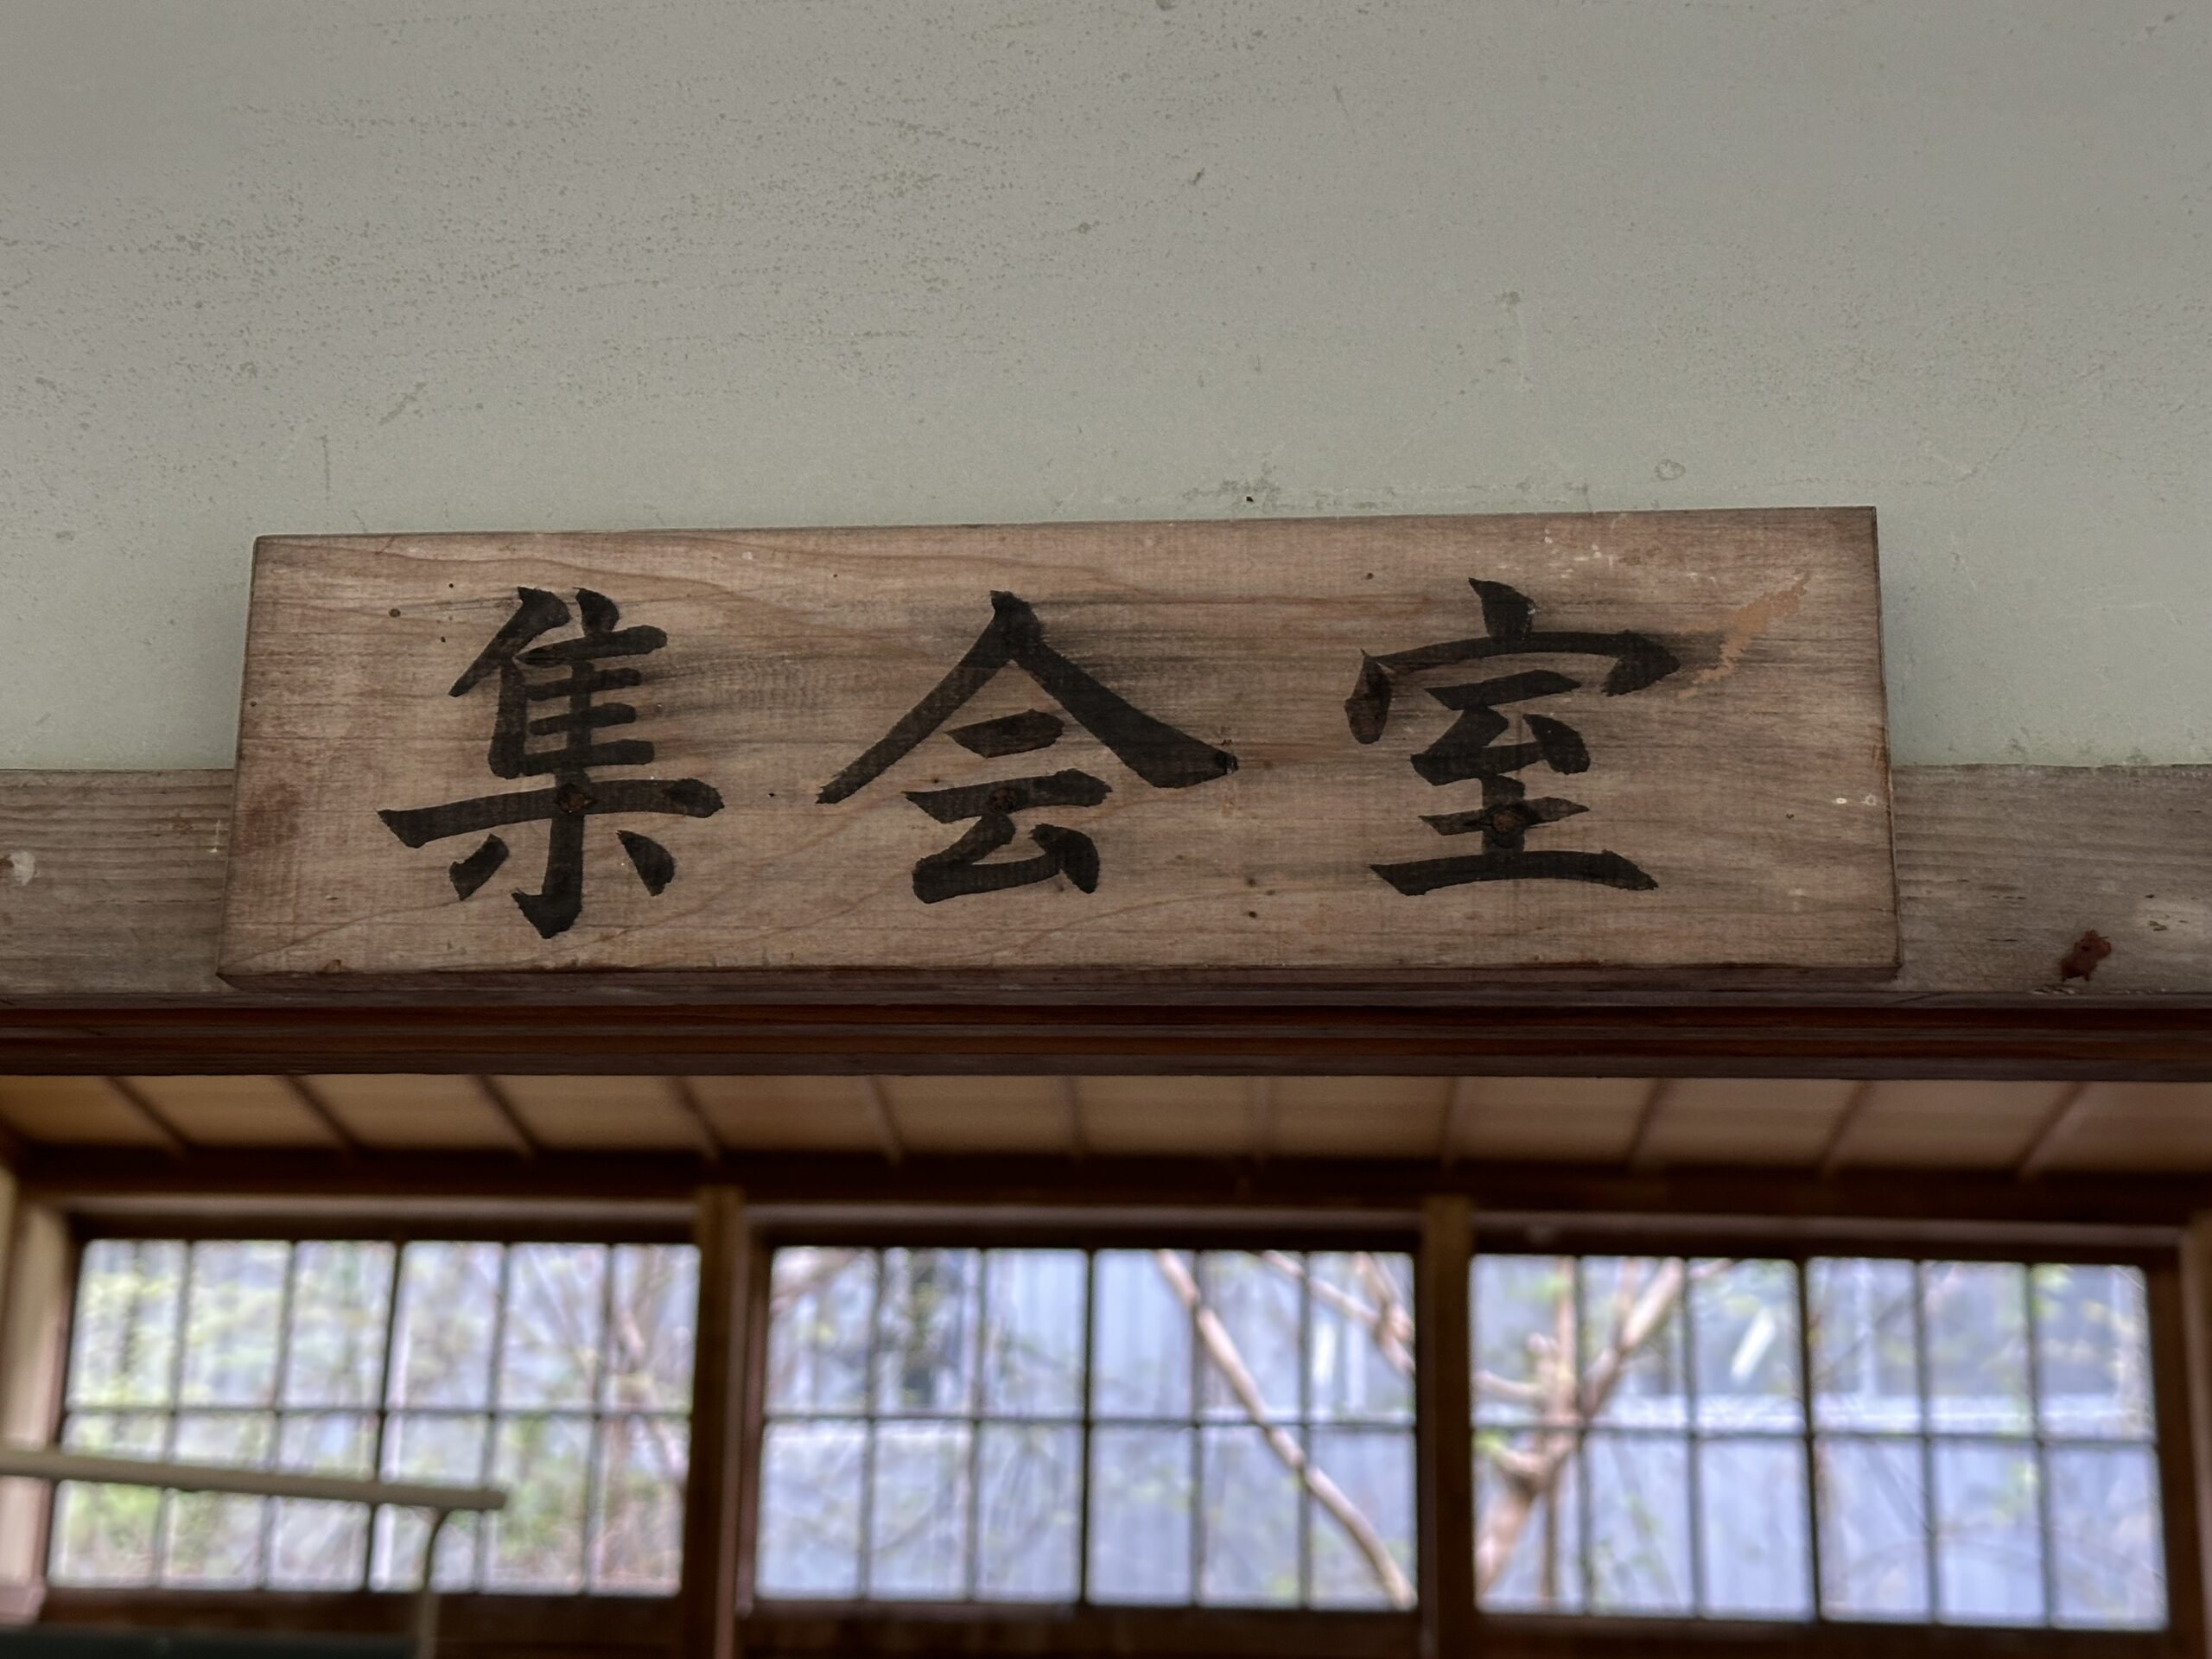 集会室